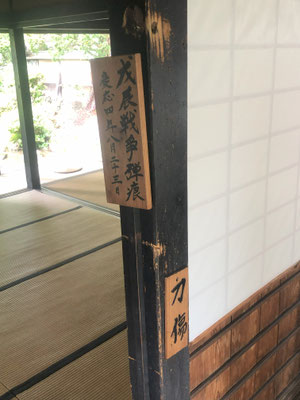 戊辰戦争弾痕
慶応四年八月二十三日
刀傷